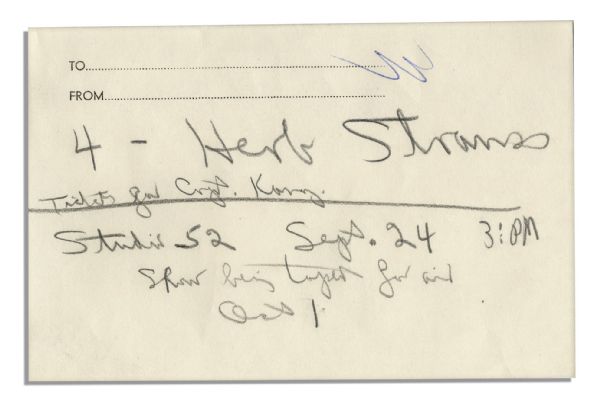 TO
FROM
4 - Herb Strauss
Tickets for Capt. Kang.
Studio 52 Sept. 24 3:PM
Show being taped for air
Oct 1